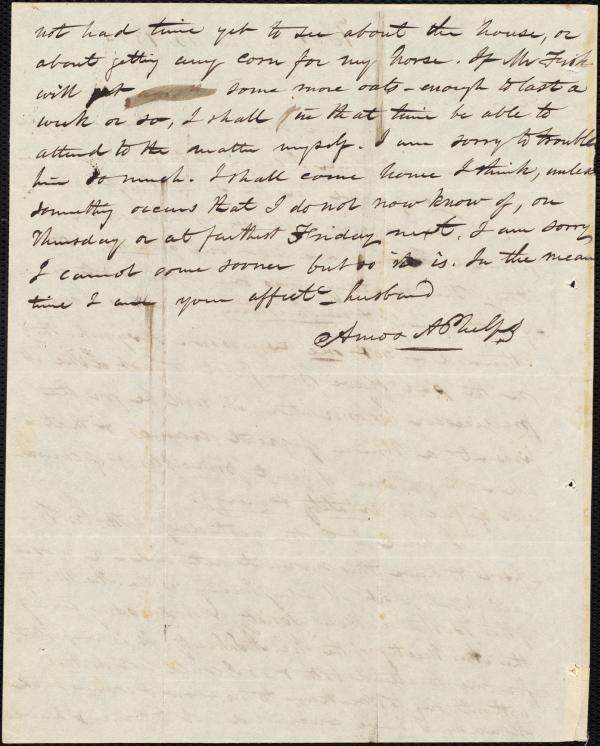 not had time yet to see about the house, or
about getting any corn for my horse. If Mr Fisk
will get some more oats - enough to last a
week or so, I shall in that time be able to
attend to the matter myself. I am sorry to trouble
him so much. I shall come home I think, unless
something occurs that I do not now know of, on
Thursday or at farthest Friday next. I am sorry
I cannot come sooner but so it is. In the mean
time I am your affect- husband
Amos A Phelps